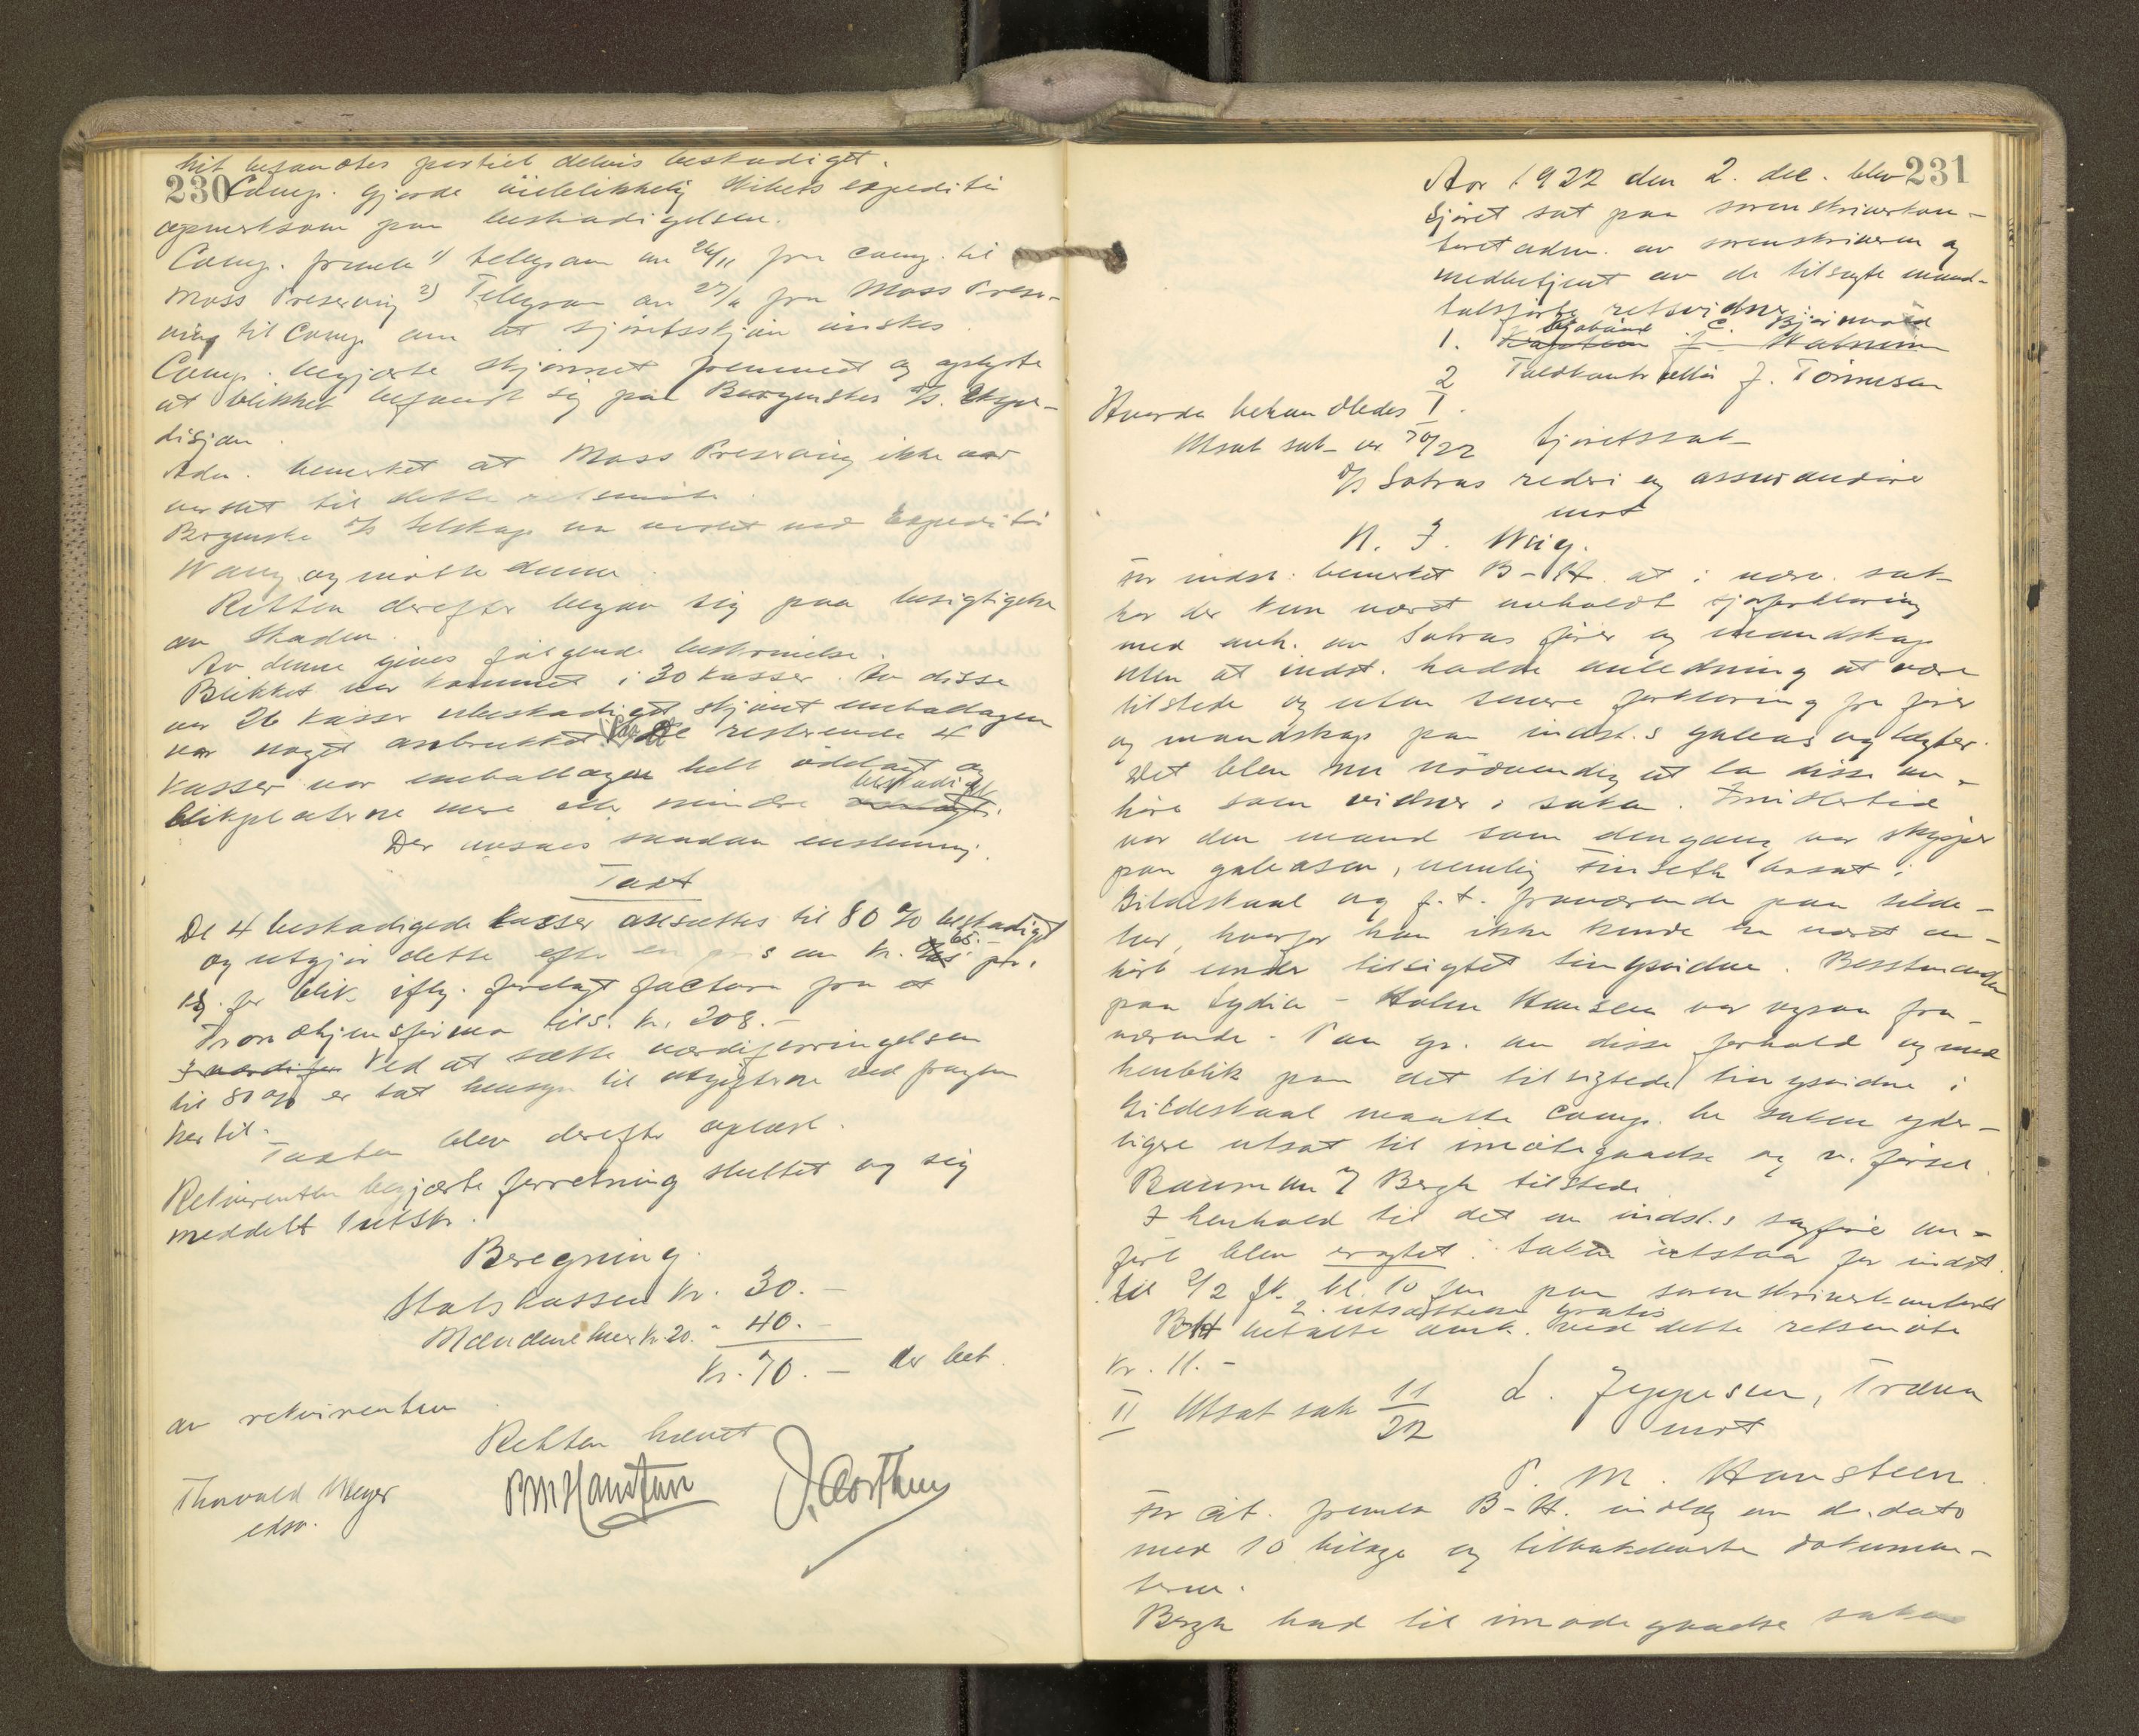 230
hit befandtes partiet delvis beskadiget.
Comp. gjorde øieblikkelig expeditør
opmerksom paa beskadigelsen.
Comp. freml. 1) telegram av 26/11 fra comp. til
Moss Preserving 2) Telegram av 27/11 fra Moss Preser-
ving til Comp. om at sjøretsskjøn ønskes.
Comp. begjærte skjønnet fremmet og oplyste
at blikket befandt sig paa Bergenskes D/S. Ekspe-
disjon.
Adm. bemerket at Moss Preserving ikke var
varslet til dette retsmøte.
Bergenske D/S Selskap var varslet ved Expeditør
Wang og møtte denne.
Retten derefter begav sig paa besigtigelse
av skaden.
Av denne gives følgende beskrivelse.
Blikket var kommet i 30 kasser. Av disse
var 26 kasser ubeskadiget skjønt emballagen
var noget anbrukket. De resterende 4
kasser var emballagen helt ødelagt og
blikplaterne mere eller mindre beskadiget.
Der avsaaes saadan enstemmig
Taxt
De 4 beskadigede kasser ansættes til 80 % beskadiget
og utgjør dette efter en pris av kr. 65.- pr.
ks. for blik iflg. forelagt factura fra et
Trondhjemsfirma tils. kr. 208.-
Ved at sætte værdiforringelsen
til 80 % er tat hensyn til utgifterne ved fragten
hertil.
Taxten blev derefter oplæst.
Rekvirenten begjærte forretning sluttet og sig
meddelt utskr.
Beregning.
Statskassen kr. 30.-
Mændene hver kr. 20. " 40.-
Kr. 70.- der bet.
av rekvirenten.
Retten hævet
Thorvald Meyer
edsv.
PM Hansteen
J. Corthum
231
Aar 1922 den 2. dec. blev
sjøret sat paa sorenskriverkon-
toret adm. av sorenskriveren og
medbetjent av de tilsagte mand-
talsførte retsvidner:
1. C. Bjørnvold
2 Toldkontrollør J. Tønnesen
Hvorda behandledes I.
Utsat sak nr. 70/22 Sjøretssak
D/S Sotras rederi og assurandører
mot
N. J. Weig.
For indst. bemerket B-H. at i nærv. sak
har der kun været avholdt sjøforklaring
med avh. av Sotras fører og mandskap
uten at indst. hadde anledning at være
tilstede og uten senere forklaring fra fører
og mandskap paa indst.s galeas og lægter.
Det blev nu nødvendig at la disse an-
høre som vidner i saken. Imidlertid
var den mand som dengang var skipper
paa galeasen, nemlig Finseth bosat i
Gildeskaal og f.t. fraværende paa silde-
tur, hvorfor han ikke kunde ha været an-
hørt under tilsigtet tingsvidne. Besstmanden
paa Lydia - Halvor Hansen var ogsaa fra-
værende. Paa gr. av disse forhold og med
henblik paa det tilsigtede tingsvidne i
Gildeskaal maatte comp. be saken yder-
ligere utsat til imøtegaaelse og v. førsel.
Baumann & Bergh tilstede
I henhold til det av indst.s sagfører an-
ført blev eragtet: Saken utstaar for indst.
til 2/2 fk. kl. 10 fm paa sorenskriverkontoret
2. utsættelse gratis
B-H betalte omk. ved dette retsmøte
kr. 11.-
II Utsat sak 11/22 L. Jeppesen, Træna
mot
P. M. Hansteen.
For cit. freml. B-H. indlæg av d. dato
med 10 bilage og tilbakeleverte dokumen-
terne.
Bergh bad til imødegaaelse saken